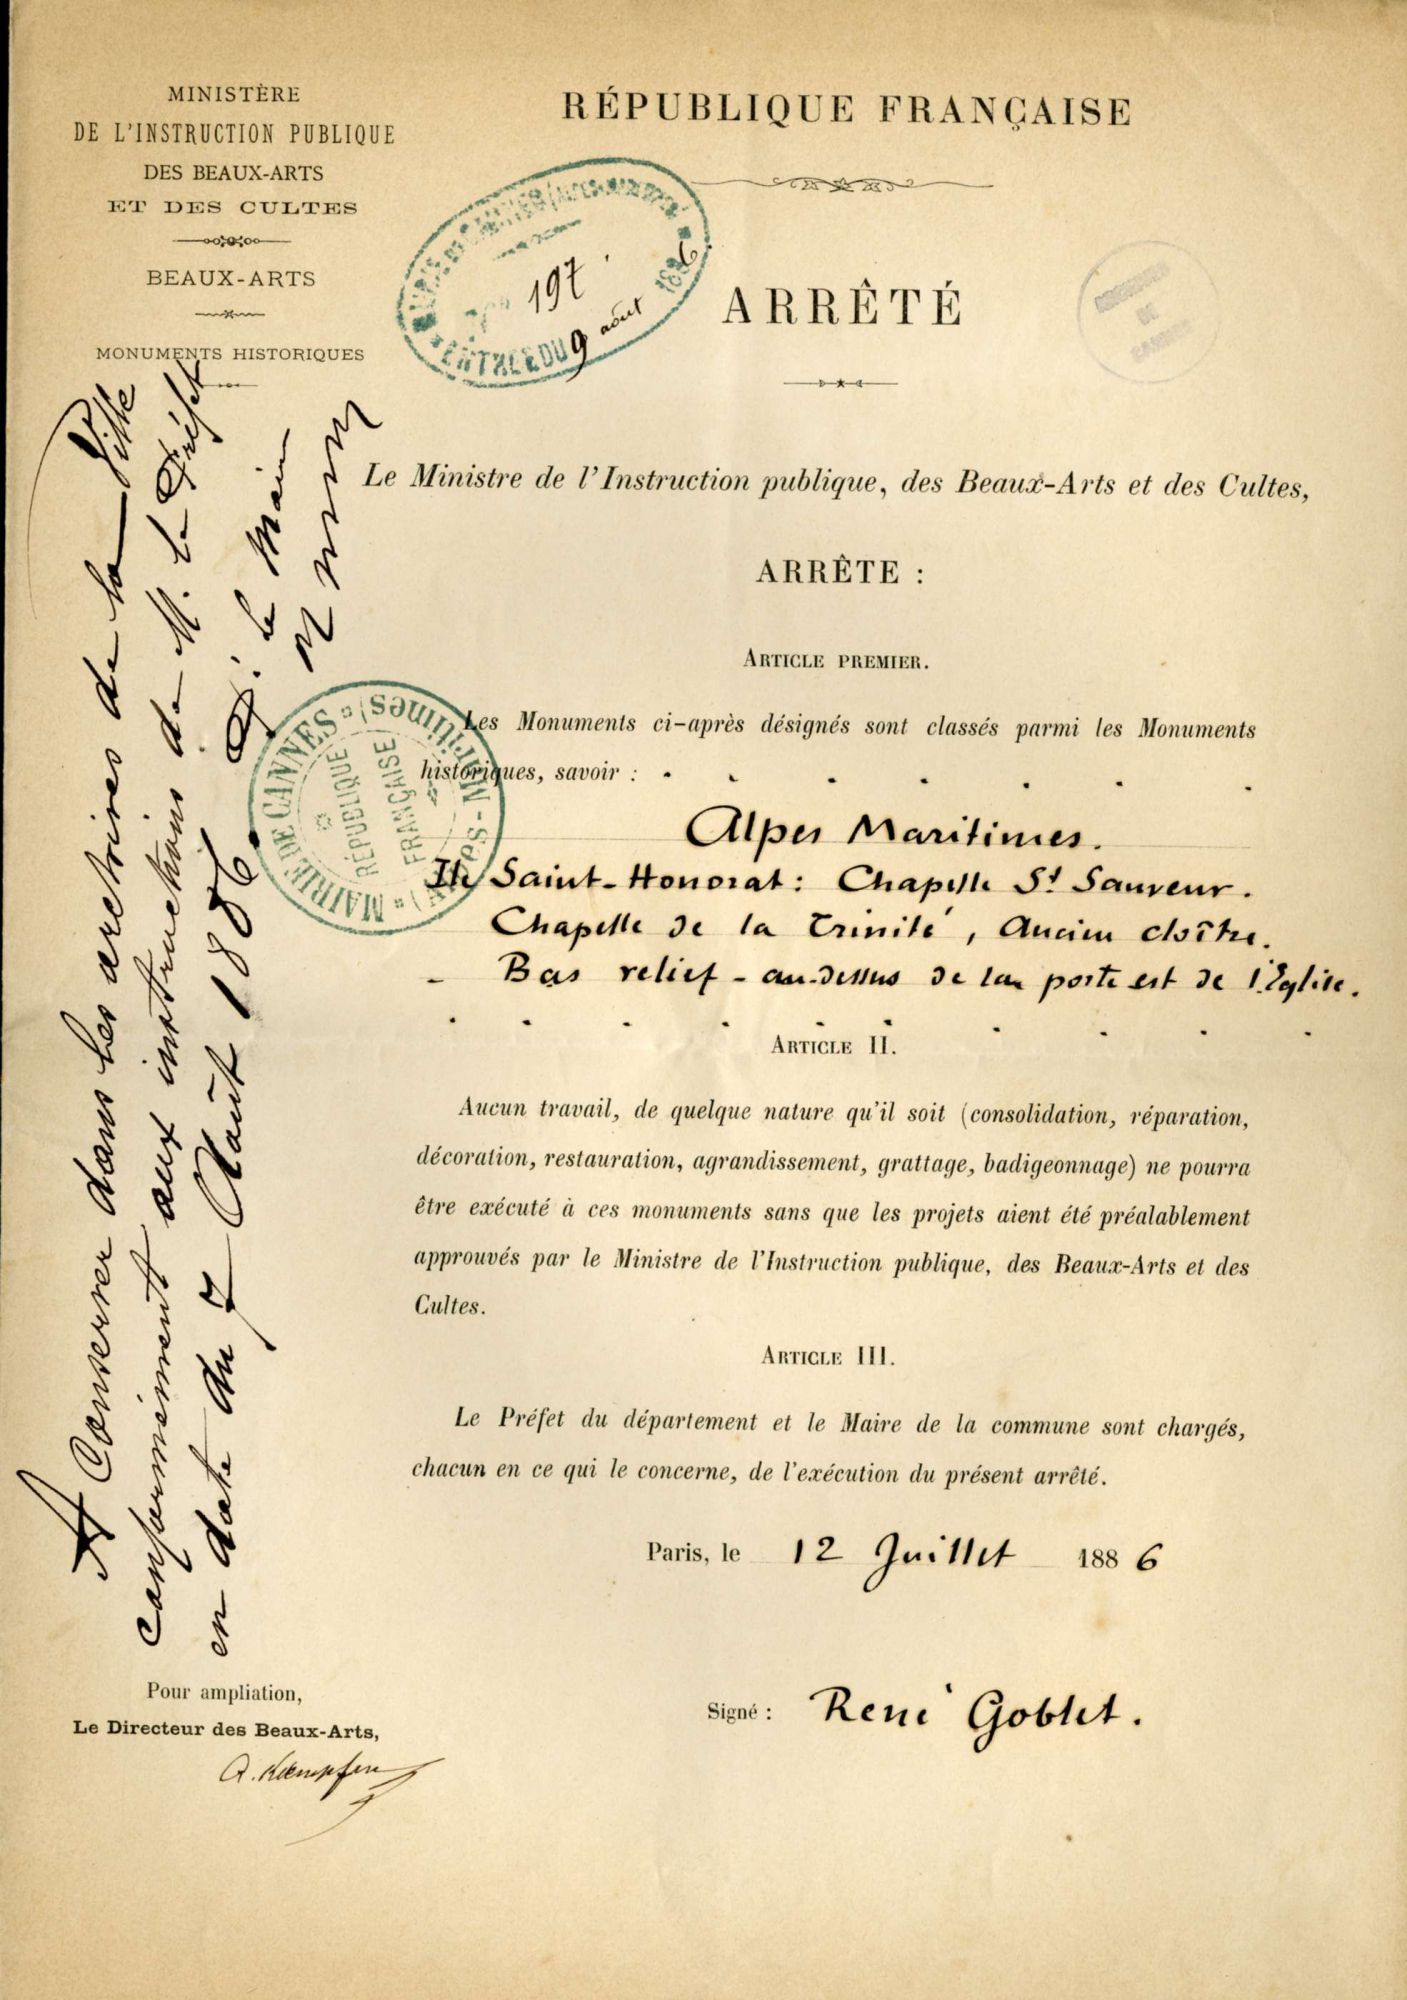 MINISTÈRE
DE L'INSTRUCTION PUBLIQUE
DES BEAUX-ARTS
ET DES CULTES
BEAUX-ARTS
MONUMENTS HISTORIQUES
RÉPUBLIQUE FRANÇAISE
197
ENTRÉE DU 9 août 1886.
ARRÊTÉ
DE
Le Ministre de l'Instruction publique, des Beaux-Arts et des Cultes,
ARRÊTE :
ARTICLE PREMIER.
Les Monuments ci-après désignés sont classés parmi les Monuments
historiques, savoir :
Alpes Maritimes.
Ile Saint-Honorat : Chapelle St Sauveur.
Chapelle de la Trinité, Ancien cloître.
- Bas relief - au-dessus de la porte est de l'Église.
ARTICLE II.
Aucun travail, de quelque nature qu'il soit (consolidation, réparation,
décoration, restauration, agrandissement, grattage, badigeonnage) ne pourra
être exécuté à ces monuments sans que les projets aient été préalablement
approuvés par le Ministre de l'Instruction publique, des Beaux-Arts et des
Cultes.
ARTICLE III.
Le Préfet du département et le Maire de la commune sont chargés,
chacun en ce qui le concerne, de l'exécution du présent arrêté.
Paris, le 12 Juillet 1886
Signé : René Goblet.
A Conserver dans les archives de la Ville
conformément aux instructions de M. le Préfet
en date du 7 Août 1886.
Le Maire
MAIRIE DE CANNES (Alpes-Maritimes)
RÉPUBLIQUE
FRANÇAISE
Pour ampliation,
Le Directeur des Beaux-Arts,
A. Kaempfen